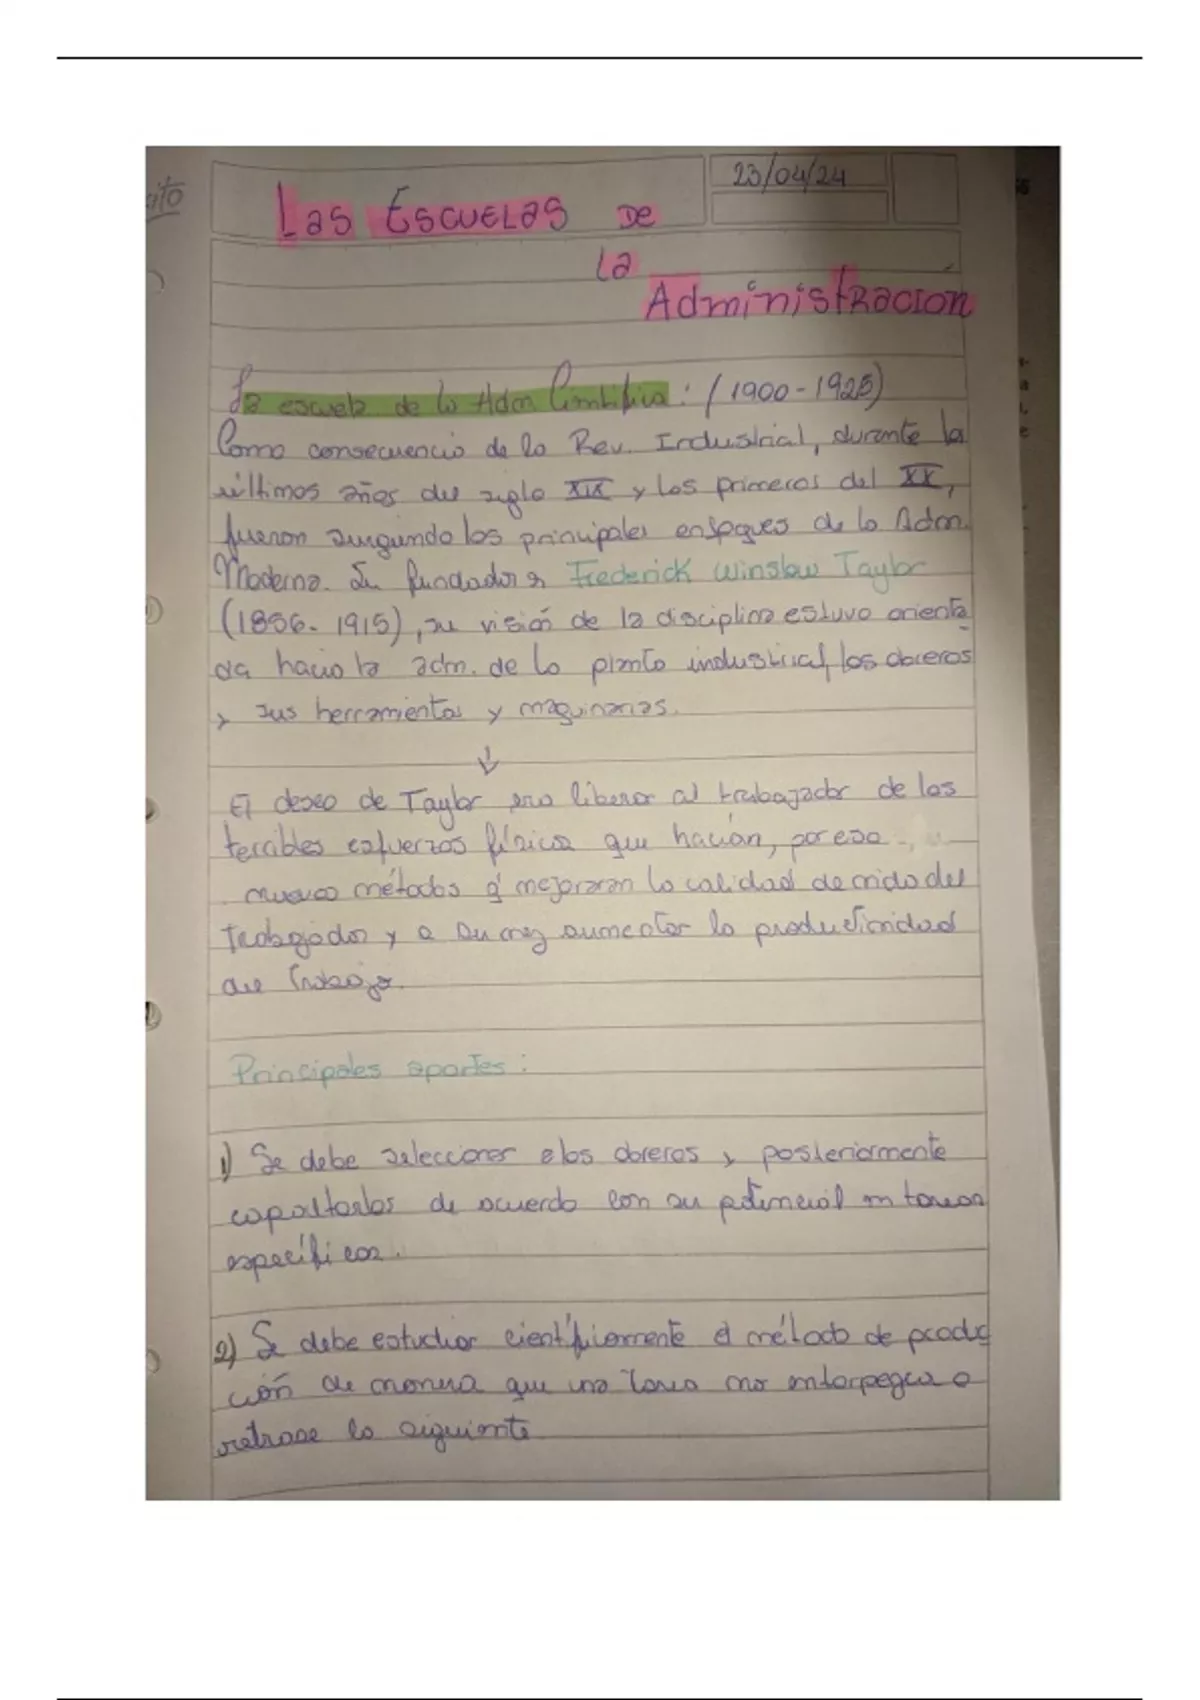 23/04/24
Las Escuelas de
la
Administración
La escuela de la Adm Científica: (1900-1925)
Como consecuencia de la Rev. Industrial, durante los
últimos años del siglo XIX y los primeros del XX,
fueron surgiendo los principales enfoques de la Adm.
Moderna. Su fundador es Frederick Winslow Taylor
(1856-1915), su visión de la disciplina estuvo orienta
da hacia la adm. de la planta industrial, los obreros
y sus herramientas y maquinarias.
↓
El deseo de Taylor era liberar al trabajador de los
terribles esfuerzos físicos que hacían, por eso
nuevos métodos q' mejoraran la calidad de vida del
trabajador y a su vez aumentar la productividad
del trabajo.
Principales aportes:
1) Se debe seleccionar a los obreros y posteriormente
capacitarlos de acuerdo con su potencial en tareas
específicas.
2) Se debe estudiar científicamente el método de produc
ción de manera que una tarea no entorpezca o
retrase la siguiente